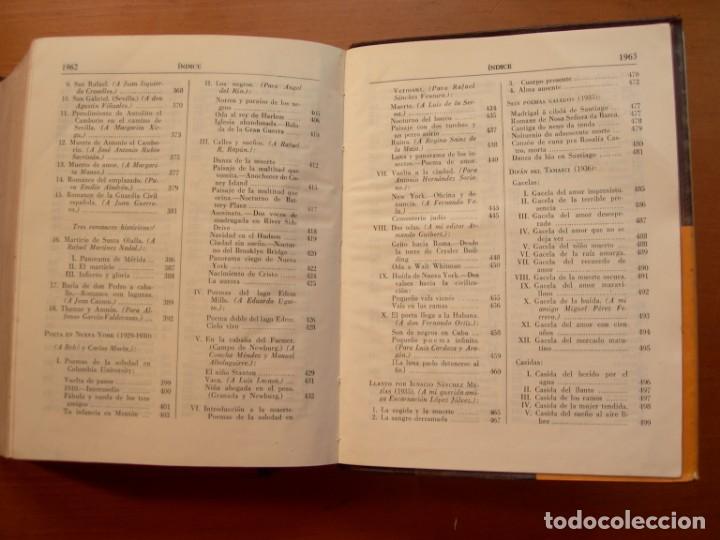 1962
ÍNDICE
9. San Rafael. (A Juan Izquierdo Croselles.) ........ 368
10. San Gabriel. (Sevilla.) (A don
Agustín Viñuales.) ........ 370
11. Prendimiento de Antoñito el
Camborio en el camino de
Sevilla. (A Margarita Xirgu.) ........ 373
12. Muerte de Antonio el Camborio. (A José Antonio Rubio
Sacristán.) ........ 375
13. Muerto de amor. (A Margarita Manso.) ........ 377
14. Romance del emplazado. (Para Emilio Aladrén.) ........ 379
15. Romance de la Guardia Civil
española. (A Juan Guerrero.) ........ 381
Tres romances históricos:
16. Martirio de Santa Olalla. (A
Rafael Martínez Nadal.)
I. Panorama de Mérida ... 386
II. El martirio ........ 387
III. Infierno y gloria ........ 388
17. Burla de don Pedro a caballo.—Romance con lagunas.
(A Jean Cassou.) ........ 389
18. Thamar y Amnón. (Para Alfonso García-Valdecasas.) ... 392
POETA EN NUEVA YORK (1929-1930)
(A Bebé y Carlos Morla.)
I. Poemas de la soledad en
Columbia University:
Vuelta de paseo ........ 399
1910.-Intermedio ........ 400
Fábula y rueda de los tres
amigos ........ 401
Tu infancia en Menton ... 403
II. Los negros. (Para Angel
del Río.)
Norma y paraíso de los negros ........ 405
Oda al rey de Harlem ... 406
Iglesia abandonada.—Balada de la Gran Guerra ... 410
III. Calles y sueños. (A Rafael
R. Rapún.)
Danza de la muerte ........ 412
Paisaje de la multitud que
vomita.—Anochecer de Coney Island ........ 415
Paisaje de la multitud que
orina.—Nocturno de Battery Place ........ 417
Asesinato.—Dos voces de
madrugada en River Side
Drive ........ 418
Navidad en el Hudson ... 419
Ciudad sin sueño.—Nocturno del Brooklyn Bridge ...
Panorama ciego de Nueva
York ........
Nacimiento de Cristo ........ 424
La aurora ........ 425
IV. Poemas del lago Edem
Mills. (A Eduardo Ugarte.)
Poema doble del lago Edem.
Cielo vivo ........
V. En la cabaña del Farmer.
(Campo de Newburg.) (A
Concha Méndez y Manuel
Altolaguirre.)
El niño Stanton ........ 429
Vaca. (A Luis Lacasa.) ... 431
Niña ahogada en el pozo.
(Granada y Newburg.) ... 432
VI. Introducción a la muerte.
Poemas de la soledad en
ÍNDICE
1963
VERMONT. (Para Rafael
Sánchez Ventura.)
Muerte. (A Luis de la Serna.) ........ 434
Nocturno del hueco ........
Paisaje con dos tumbas y
un perro asirio ........
Ruina. (A Regino Sainz de
la Maza.) ........
Luna y panorama de los insectos.—Poema de amor.
VII. Vuelta a la ciudad. (Para
Antonio Hernández Soriano.)
New York.—Oficina y denuncia. (A Fernando Vela.) ........
Cementerio judío ........
VIII. Dos odas. (A mi editor Armando Guibert.)
Grito hacia Roma.—Desde
la torre de Crysler Building ........
Oda a Walt Whitman ........ 450
IX. Huída de Nueva York.—Dos
valses hacia la civilización:
Pequeño vals vienés ........ 455
Vals en las ramas ........ 456
X. El poeta llega a la Habana.
(A don Fernando Ortiz.)
Son de negros en Cuba ...
Pequeño poema infinito.
(Para Luis Cardoza y Aragón.) ........
[La luna pudo detenerse al
fin] ........
LLANTO POR IGNACIO SÁNCHEZ MEJÍAS (1935). (A mi querida amiga Encarnación López Júlvez.)
1. La cogida y la muerte ........ 465
2. La sangre derramada ........ 467
3. Cuerpo presente ........ 470
4. Alma ausente ........ 472
SEIS POEMAS GALEGOS (1935):
Madrigal â cibdá de Santiago ... 477
Romaxe de Nosa Señora da Barca.
Cantiga do neno da tenda ........
Noiturnio do adoescente morto ...
Canzón de cuna pra Rosalía Castro, morta ........
Danza da lúa en Santiago ........ 481
DIVÁN DEL TAMARIT (1936):
Gacelas:
I. Gacela del amor imprevisto. 485
II. Gacela de la terrible presencia ........
III. Gacela del amor desesperado ........
IV. Gacela del amor que no se
deja ver ........
V. Gacela del niño muerto ...
VI. Gacela de la raíz amarga.
VII. Gacela del recuerdo de
amor ........
VIII. Gacela de la muerte oscura. 491
IX. Gacela del amor maravilloso ........
X. Gacela de la huída. (A mi
amigo Miguel Pérez Ferrero.) ........
XI. Gacela del amor con cien
años ........
XII. Gacela del mercado matutino ........
Casidas:
I. Casida del herido por el
agua ........
II. Casida del llanto ........
III. Casida de los ramos ........
IV. Casida de la mujer tendida. 498
V. Casida del sueño al aire libre ........ 499
todocoleccion